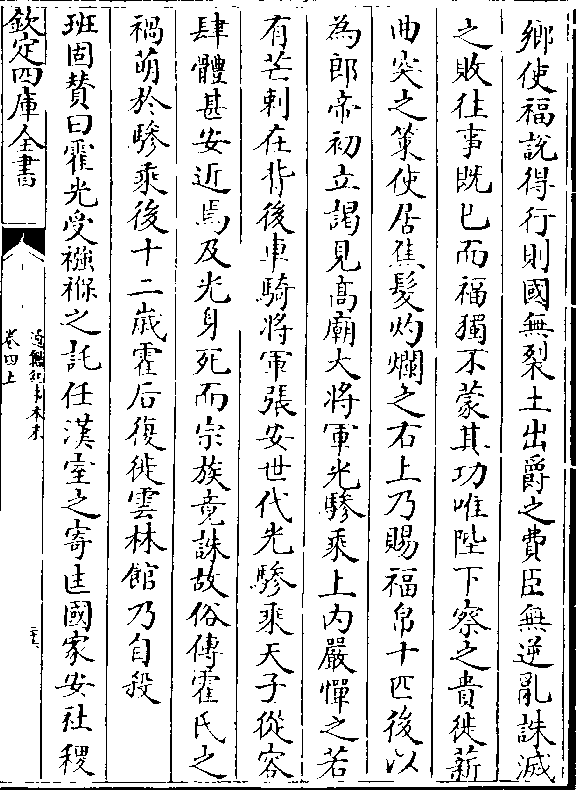 鄉使福說得行則國無裂土出爵之費臣無逆亂誅滅
之敗往事既已而福獨不蒙其功唯陛下察之貴徙薪
曲突之策使居焦髮灼爛之右上乃賜福帛十匹後以
為郎帝初立謁見高廟大將軍光驂乘上内嚴憚之若
有芒刺在背後車騎將軍張安世代光驂乘天子從容
肆體甚安近焉及光身死而宗族竟誅故俗傳霍氏之
禍萌於驂乘後十二歲霍后復徙雲林館乃自殺
班固贊曰霍光受襁褓之託任漢室之寄匡國家安社稷
欽定四庫全書
通鑑紀事本末
卷四上